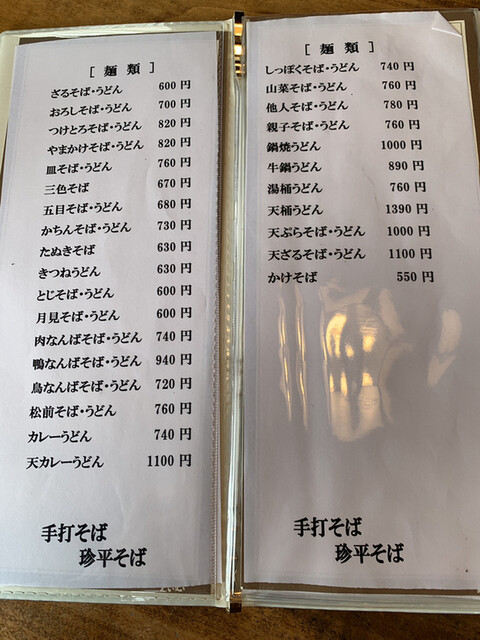 [ 麺 類 ]
ざるそば・うどん 600 円
おろしそば・うどん 700 円
つけとろそば・うどん 820 円
やまかけそば・うどん 820 円
皿そば・うどん 760 円
三色そば 670 円
五目そば・うどん 680 円
かちんそば・うどん 730 円
たぬきそば 630 円
きつねうどん 630 円
とじそば・うどん 600 円
月見そば・うどん 600 円
肉なんばそば・うどん 740 円
鴨なんばそば・うどん 940 円
鳥なんばそば・うどん 720 円
松前そば・うどん 760 円
カレーうどん 740 円
天カレーうどん 1100 円
手打そば
珍平そば
[ 麺 類 ]
しっぽくそば・うどん 740 円
山菜そば・うどん 760 円
他人そば・うどん 780 円
親子そば・うどん 760 円
鍋焼うどん 1000 円
牛鍋うどん 890 円
湯桶うどん 760 円
天桶うどん 1390 円
天ぷらそば・うどん 1000 円
天ざるそば・うどん 1100 円
かけそば 550 円
手打そば
珍平そば